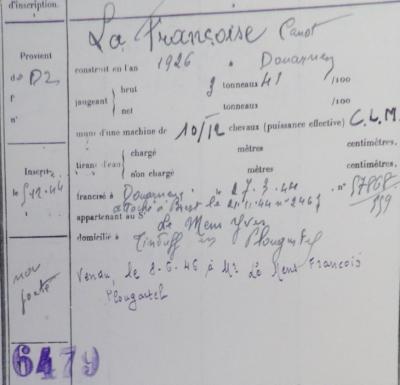 d'inscription.
La Françoise Canot
Provient
de D2
f°
n°
construit en l'an 1926 à Douarnenez
jaugeant { brut 3 tonneaux 41 /100
net tonneaux /100
muni d'une machine de 10/12 chevaux (puissance effective) C.L.M.
tirant d'eau { chargé mètres centimètres.
non chargé mètres centimètres.
Inscrit
le 5.12.44
francisé à Douarnenez le 27.3.44 n°
attaché à Brest le 21.11.44 n° 2467
appartenant au Sr Le Mens Yves
domicilié à Tinduff en Plougastel
non
ponté
Vendu, le 8-6-46 à Mr Le Mens François
Plougastel
6479